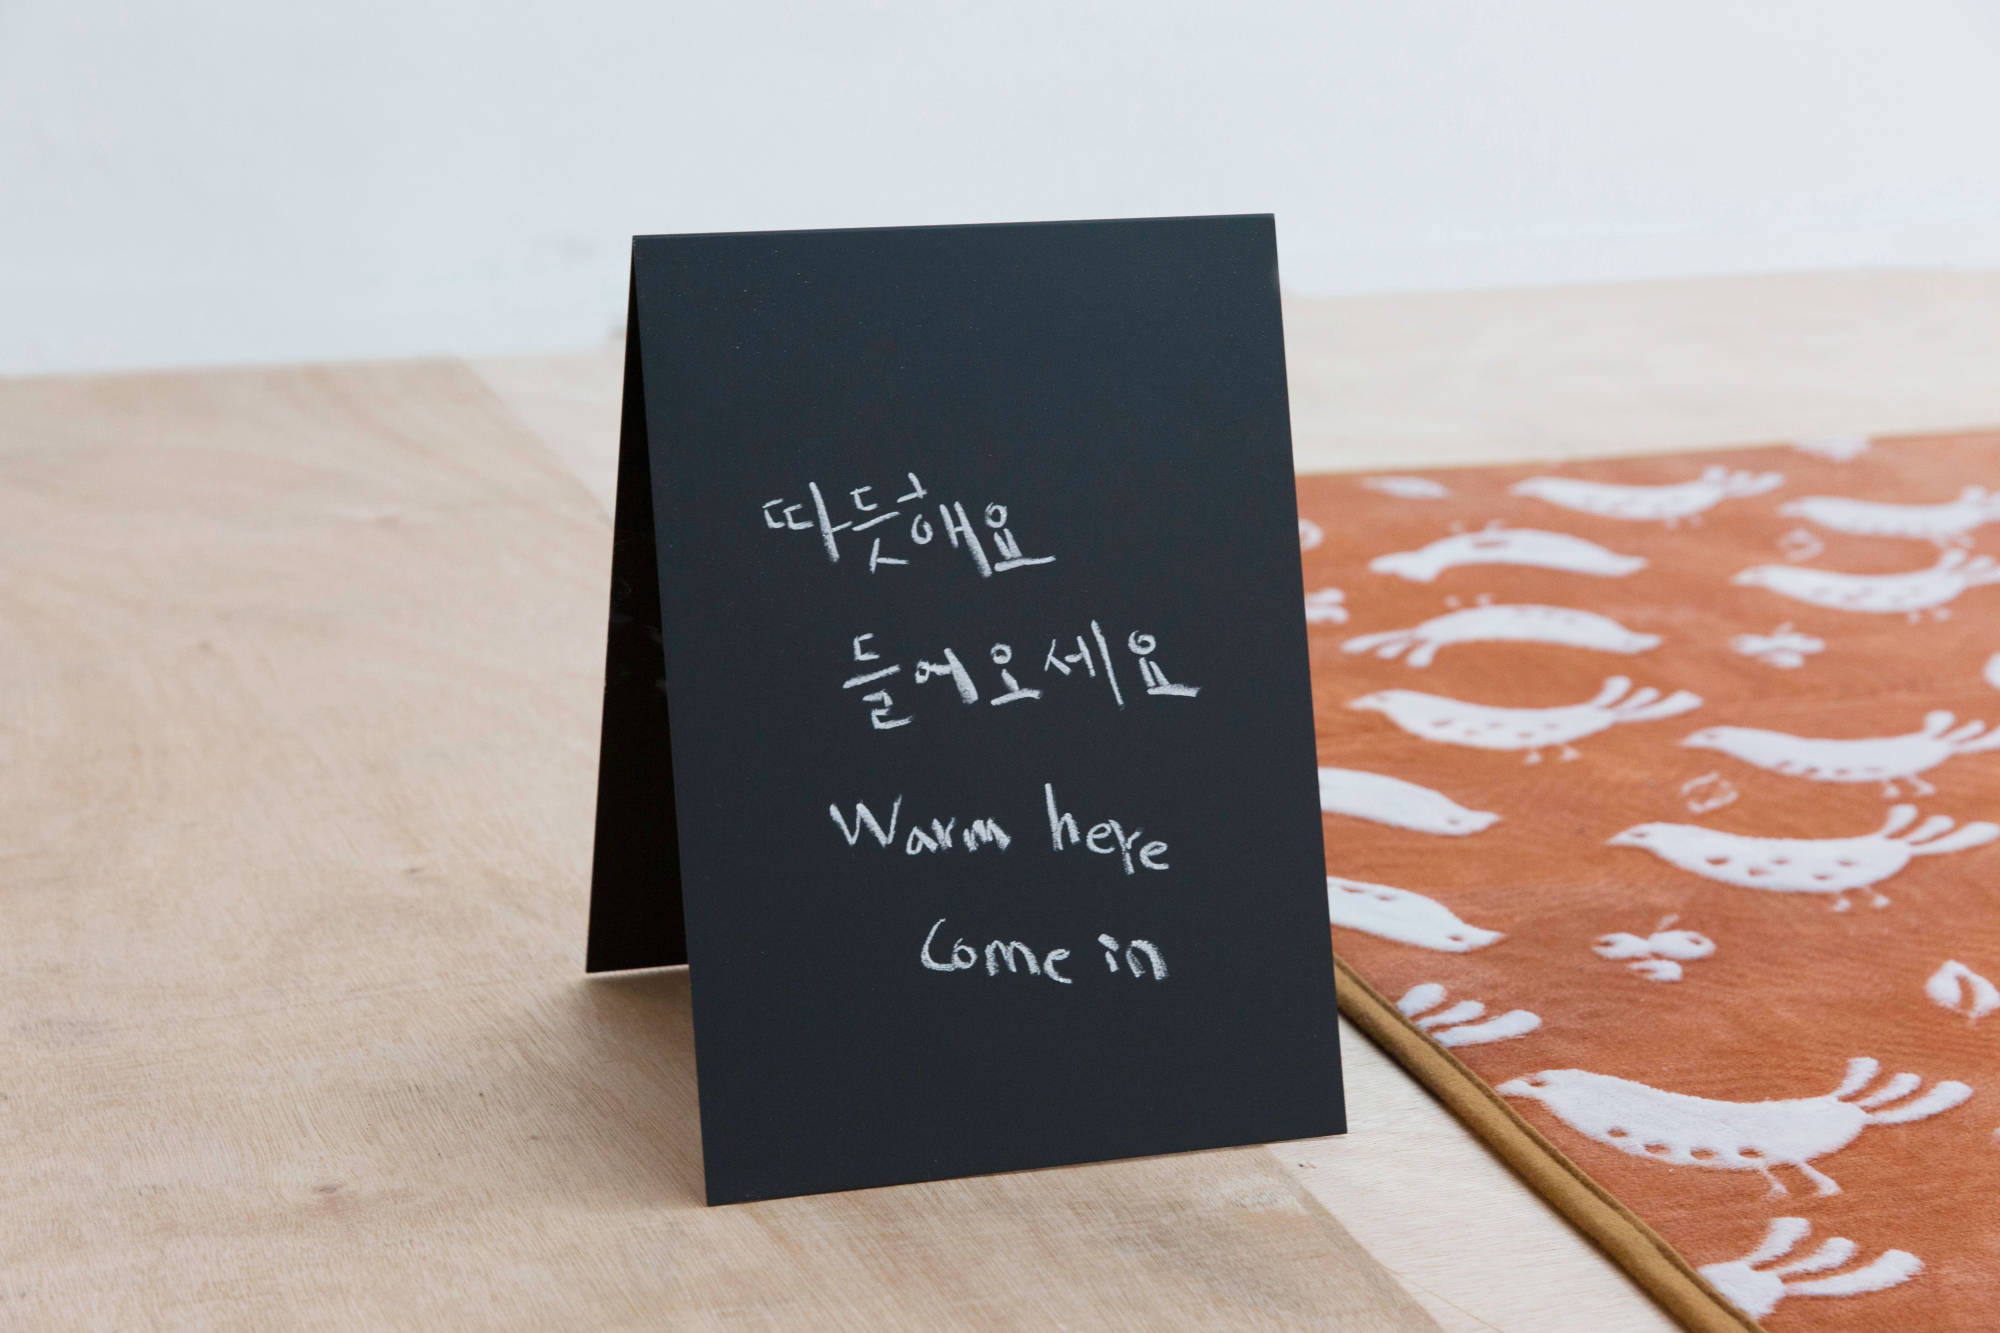 따듯해요
들어오세요
Warm here
Come in